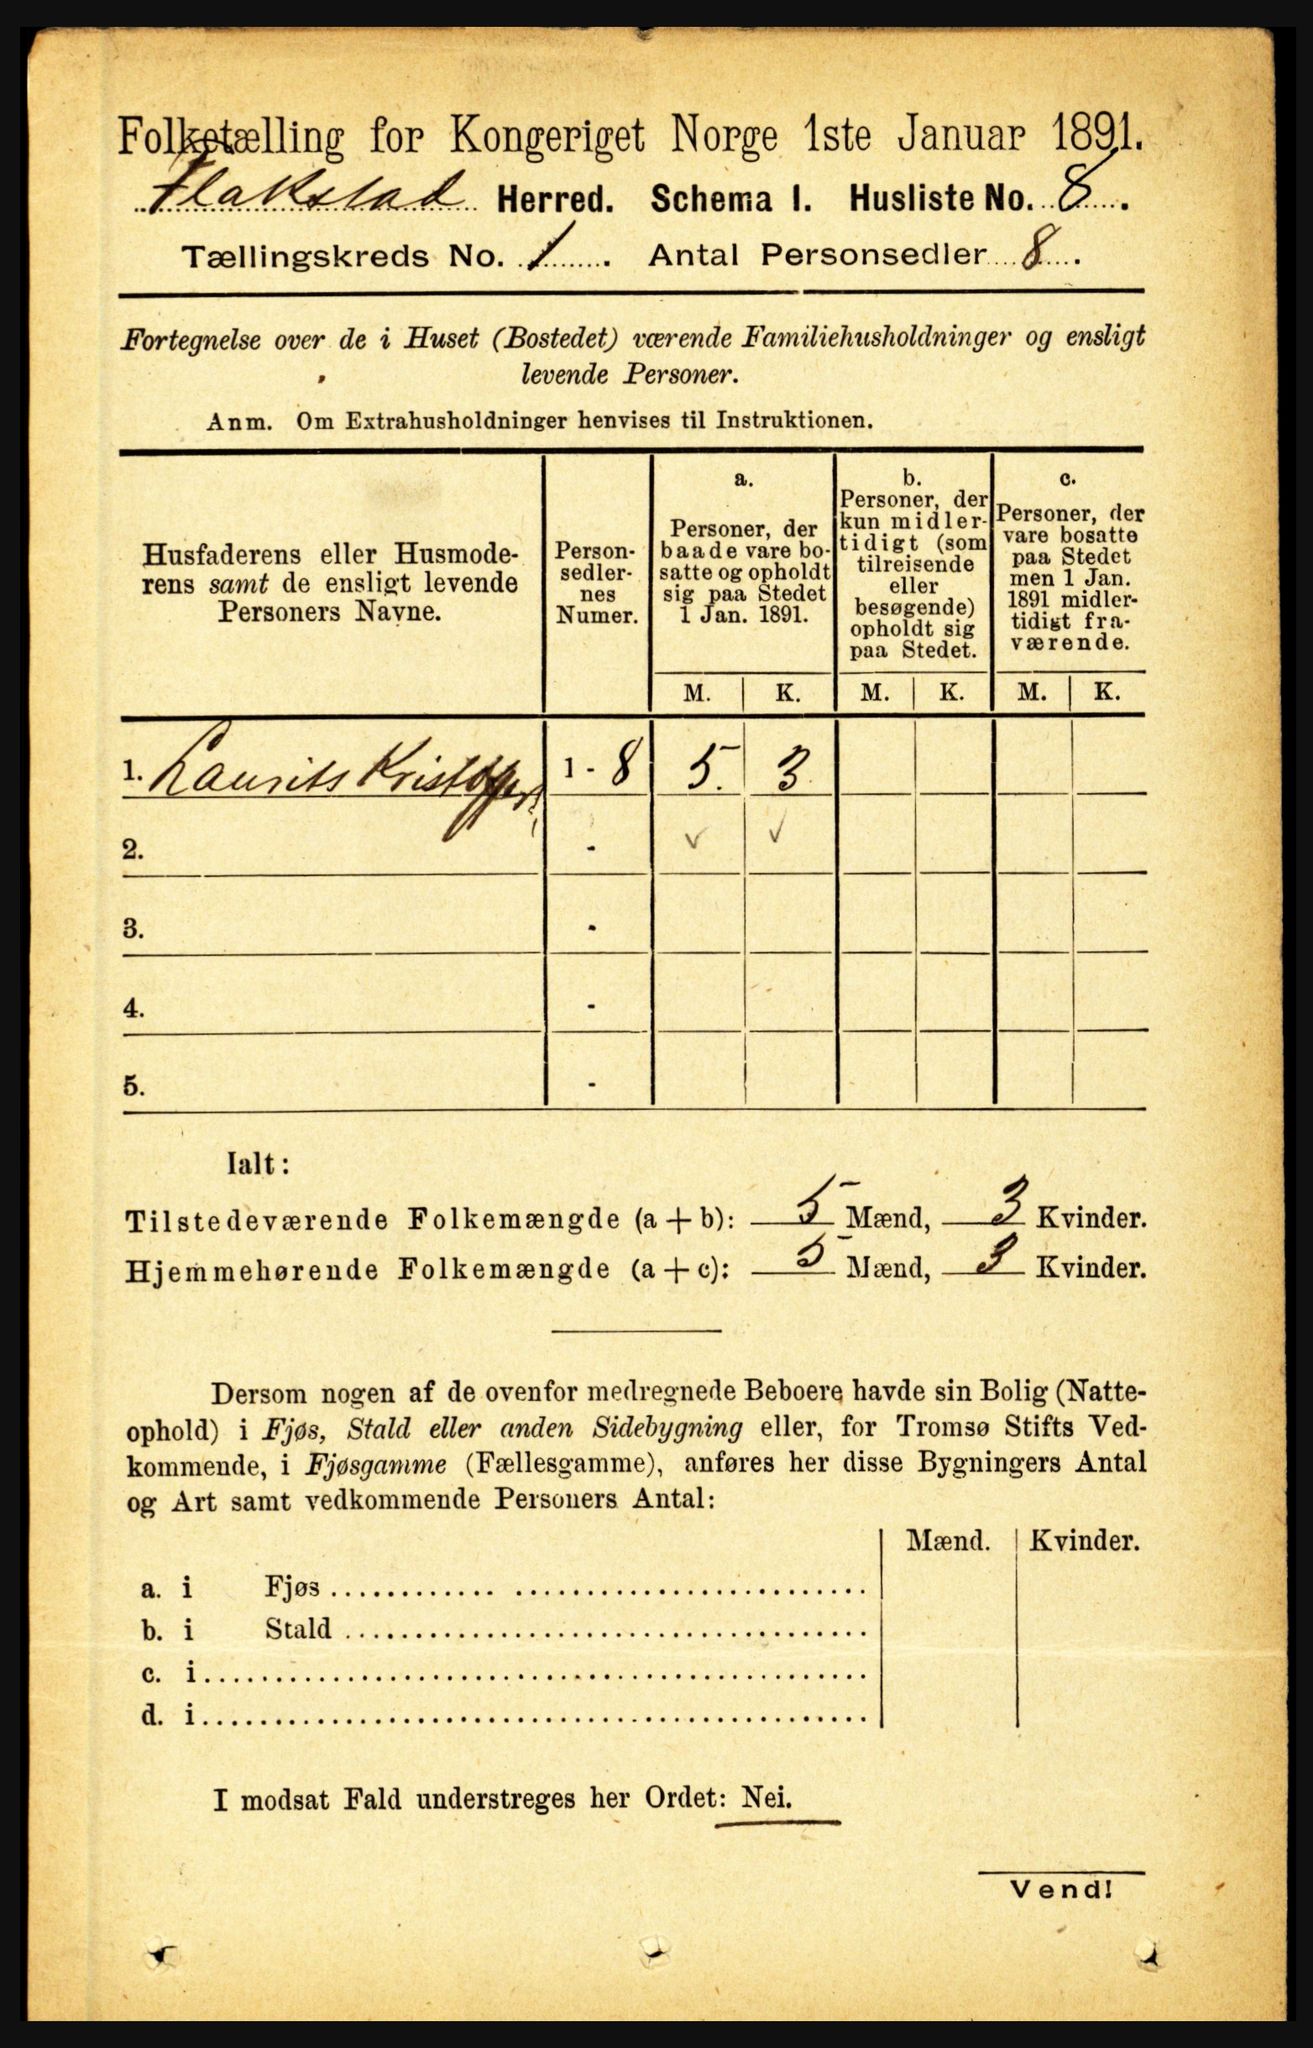 Folketælling for Kongeriget Norge 1ste Januar 1891.
Flakstad Herred. Schema 1. Husliste No. 8.
Tællingskreds No. 1. Antal Personsedler 8.
Fortegnelse over de i Huset (Bostedet) værende Familiehusholdninger og ensligt
levende Personer.
Anm. Om Extrahusholdninger henvises til Instruktionen.
Husfaderens eller Husmode-
rens samt de ensligt levende
Personers Navne.
Person-
sedler-
nes
Numer.
a.
Personer, der
baade vare bo-
satte og opholdt
sig paa Stedet
1 Jan. 1891.
b.
Personer, der
kun midler-
tidigt (som
tilreisende
eller
besøgende)
opholdt sig
paa Stedet.
c.
Personer, der
vare bosatte
paa Stedet
men 1 Jan.
1891 midler-
tidigt fra-
værende.
M. K. M. K. M. K.
1. Laurits Kristoffers. 1 - 8 5. 3.
2. - ✓ ✓
3. -
4. -
5. -
Ialt:
Tilstedeværende Folkemængde (a + b): 5 Mænd, 3 Kvinder.
Hjemmehørende Folkemængde (a + c): 5 Mænd, 3 Kvinder.
Dersom nogen af de ovenfor medregnede Beboere havde sin Bolig (Natte-
ophold) i Fjøs, Stald eller anden Sidebygning eller, for Tromsø Stifts Ved-
kommende, i Fjøsgamme (Fællesgamme), anføres her disse Bygningers Antal
og Art samt vedkommende Personers Antal:
Mænd. Kvinder.
a. i Fjøs
b. i Stald
c. i
d. i
I modsat Fald understreges her Ordet: Nei.
Vend!